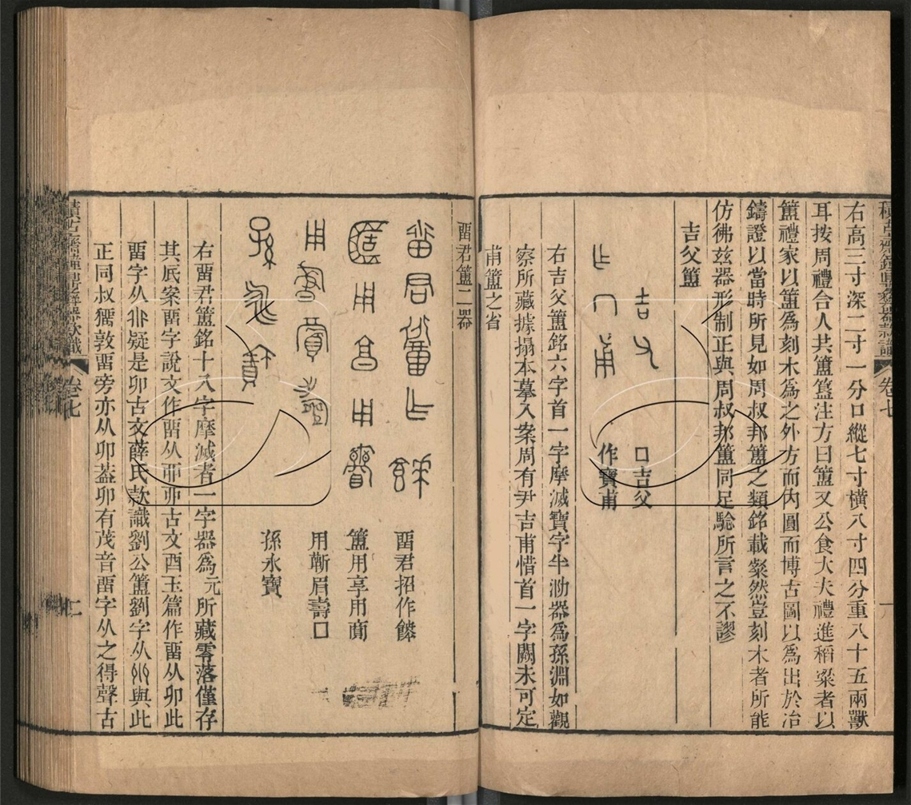 右高三寸深二寸一分口縱七寸橫八寸四分重八十五兩獸
耳按周禮合人共簠簋注方曰簠又公食大夫禮進稻粱者以
簠禮家以簠爲刻木爲之外方而內圓而博古圖以爲出於冶
鑄證以當時所見如周叔邦簠之類銘載粲然豈刻木者所能
仿彿兹器形制正與周叔邦簠同足驗所言之不謬
吉父簠
口吉父
作寶甫
右吉父簠銘六字首一字摩滅寶字半泐器爲孫淵如觀
察所藏據搨本摹入案周有尹吉甫惜首一字闕未可定
甫簠之省
畱君簠二器
畱君招作餴
簠用享用
用蘄眉壽口
孫永寶
右畱君簠銘十八字摩滅者一字器爲元所藏零落僅存
其底案畱字說文作畱从丣丣古文酉玉篇作畱从卯此
畱字从非疑是卯古文薛氏款識劉公簠劉字从與此
正同叔㺇敦畱旁亦从卯蓋卯有茂音畱字从之得聲古
積古齋鐘鼎彝器款識
卷七